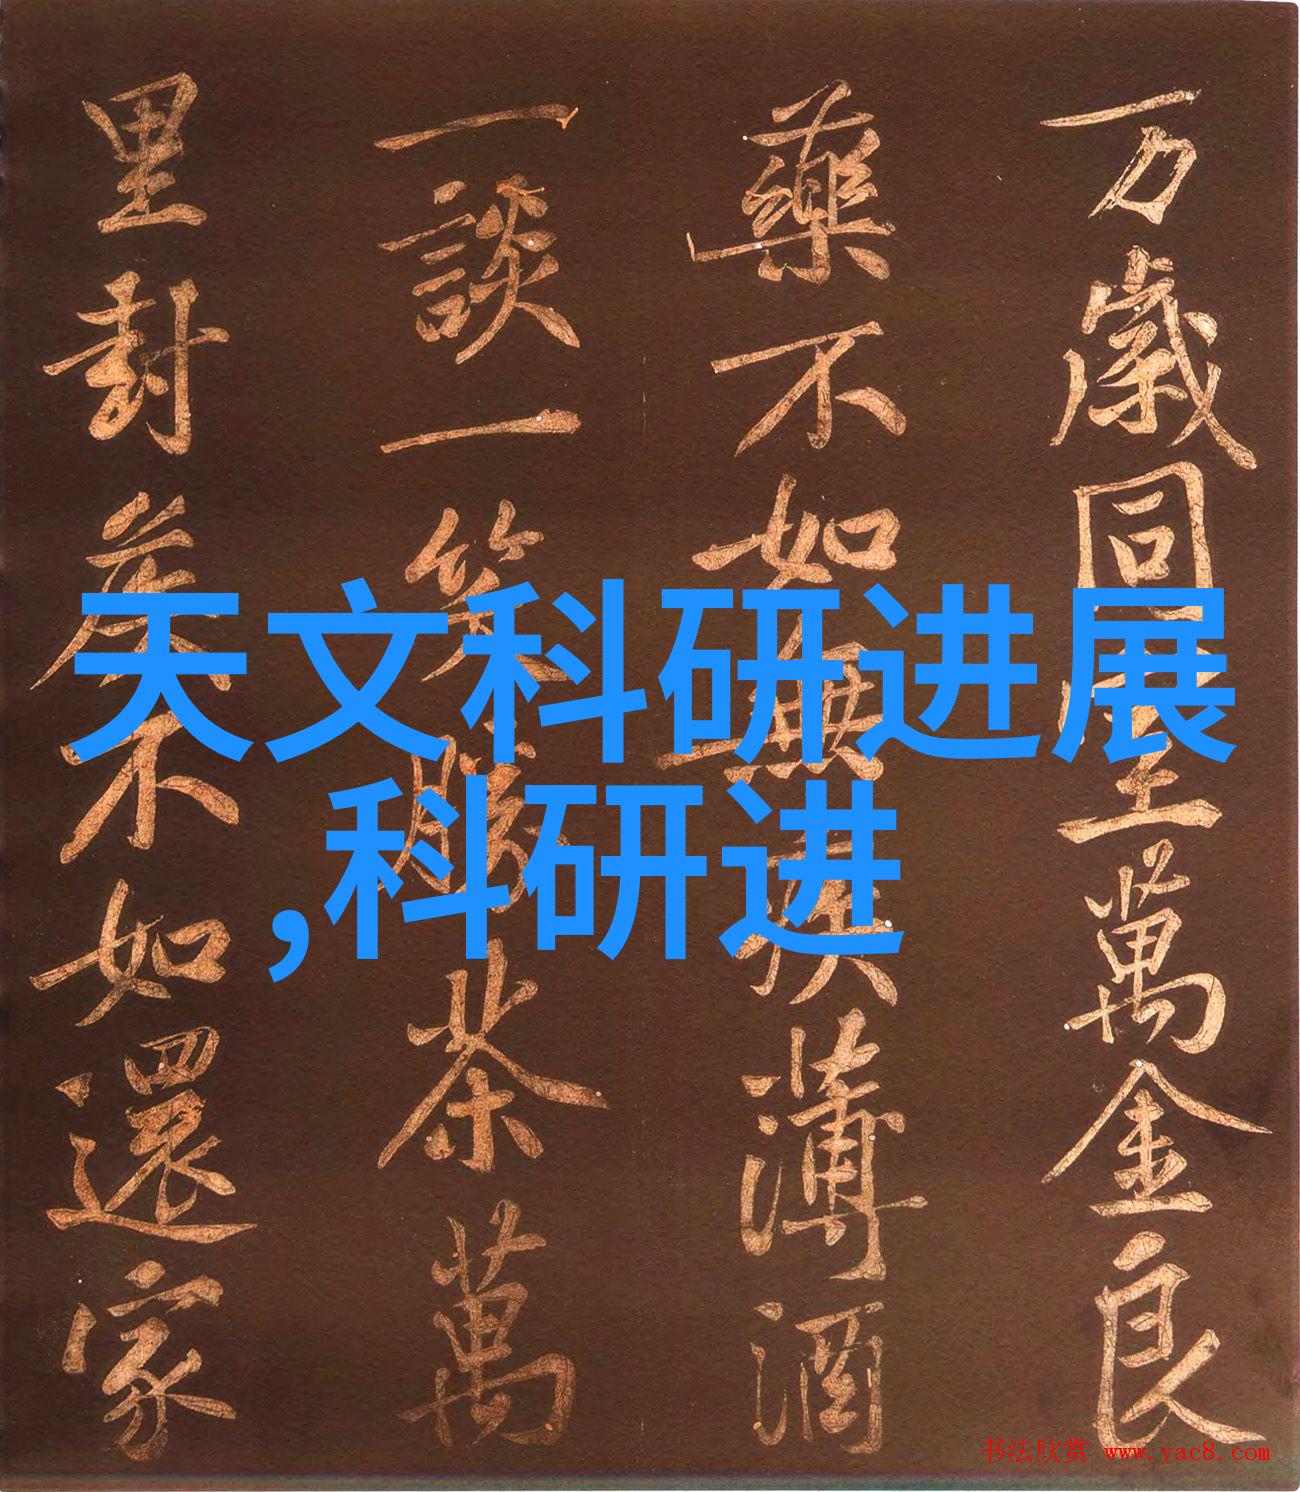 万歲同室萬金良
藥不如無疾薄酒
一談一笑勝茶萬
里封矦不如還家
天文科研进展
,科研进
书法欣赏 www.yac8.com